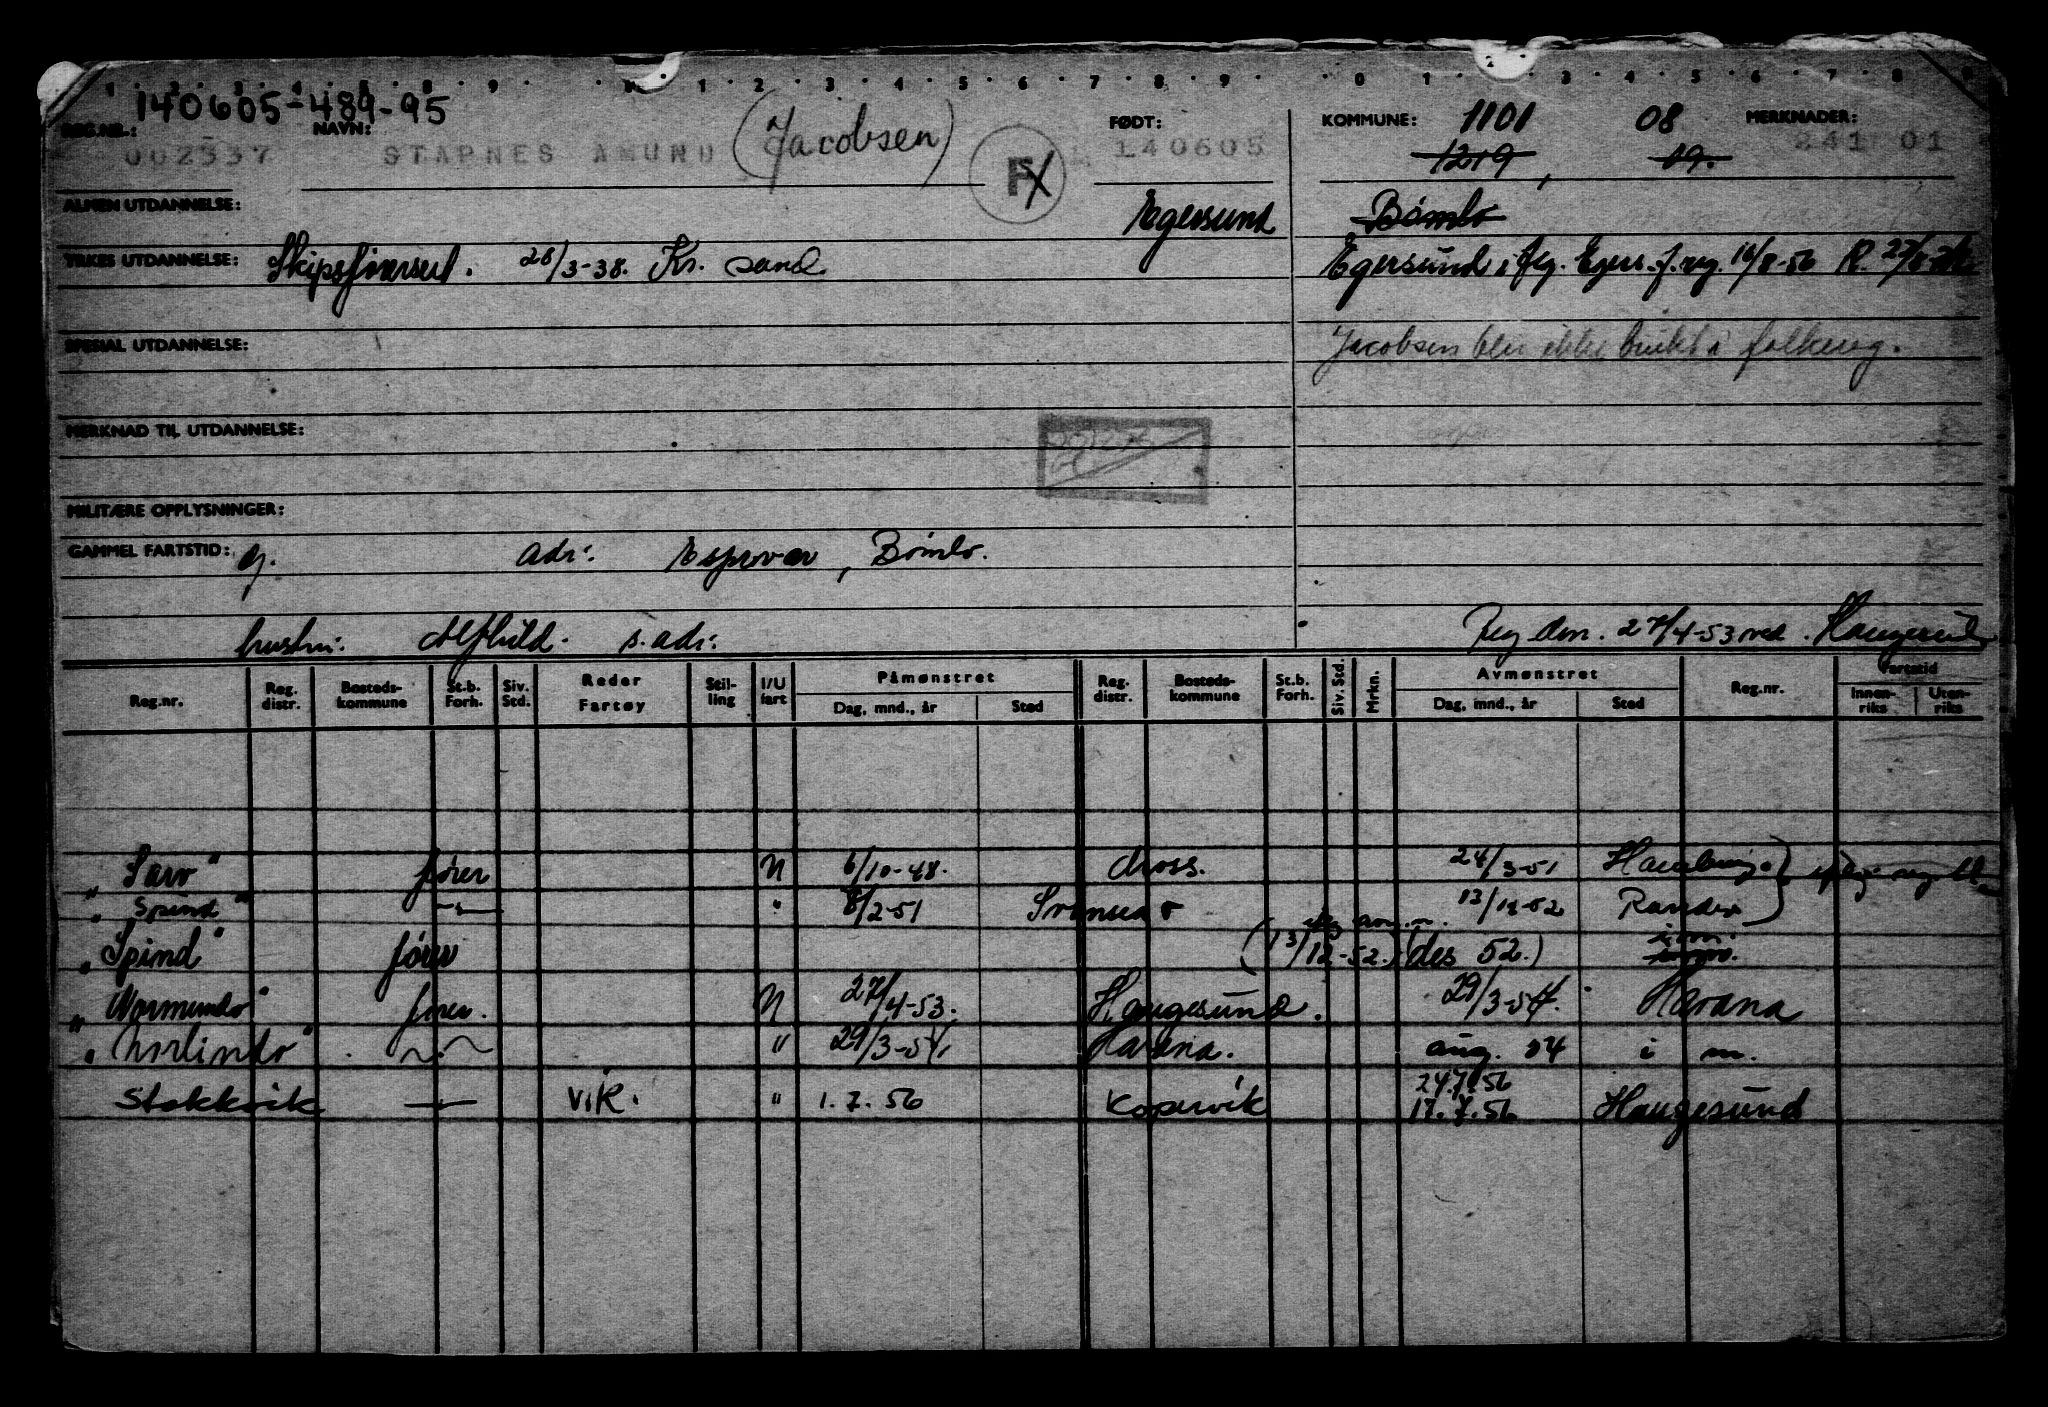 140605-489-95
REG.NR.: NAVN: (Jacobsen) FØDT: KOMMUNE: 1101 08 MERKNADER:
002337 STAPNES AMUND F 140605 1219, 09. 241 01
ALMEN UTDANNELSE: Egersund Bømlo
YRKES UTDANNELSE: Skipsførersert. 28/3-38. Kr. sand Egersund i flg. Egers. f. reg. 16/8-56
SPESIAL UTDANNELSE: Jacobsen blir ikke brukt i folkereg.
MERKNAD TIL UTDANNELSE:
MILITÆRE OPPLYSNINGER:
GAMMEL FARTSTID: adr: Espevær, Bømlo.
hustru: Alfhild. s. adr: Reg den. 27/4-53 ved. Haugesund
Reg.nr. Reg. distr. Bosteds-kommune St.b. Forh. Siv. Std. Reder Fartøy Stil-ling I/U fart Påmønstret Dag, mnd., år Sted Reg. distr. Bosteds-kommune St.b. Forh. Siv. Std. Mrkn. Avmønstret Dag, mnd., år Sted Reg.nr. Fartstid Innen-riks Uten-riks
"Saro" fører N 6/10-48. Moss. 24/3-51 Hamburg.
"Spind" 8/2-51 Svansea 13/12-52 Randers
"Spind" fører (13/12-52.) (des 52.)
"Normundo" fører. N 27/4-53. Haugesund. 29/3-54. Havana
"Norlindo" " 29/3-54 Havana. aug. 54 i m.
24.7.56
Stokkvik Vik. " 1.7.56 Kopervik 17.7.56 Haugesund